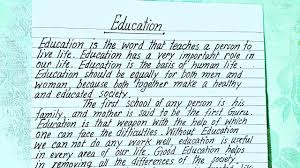 Education
Education is the word that teaches a person to
live life. Education has a very important role in
our life. Education is the basis of human life.
Education should be equally for both men and
woman, because both together make a healthy
and educated society.
The first school of any person is his
family, and mother is said to be the first Guru.
Education is that weapon with the help of which
one can face the difficulties. Without Education
we can not do any work well, education is useful
in every area of our life. Good Education helps
in removing all the differences of the society